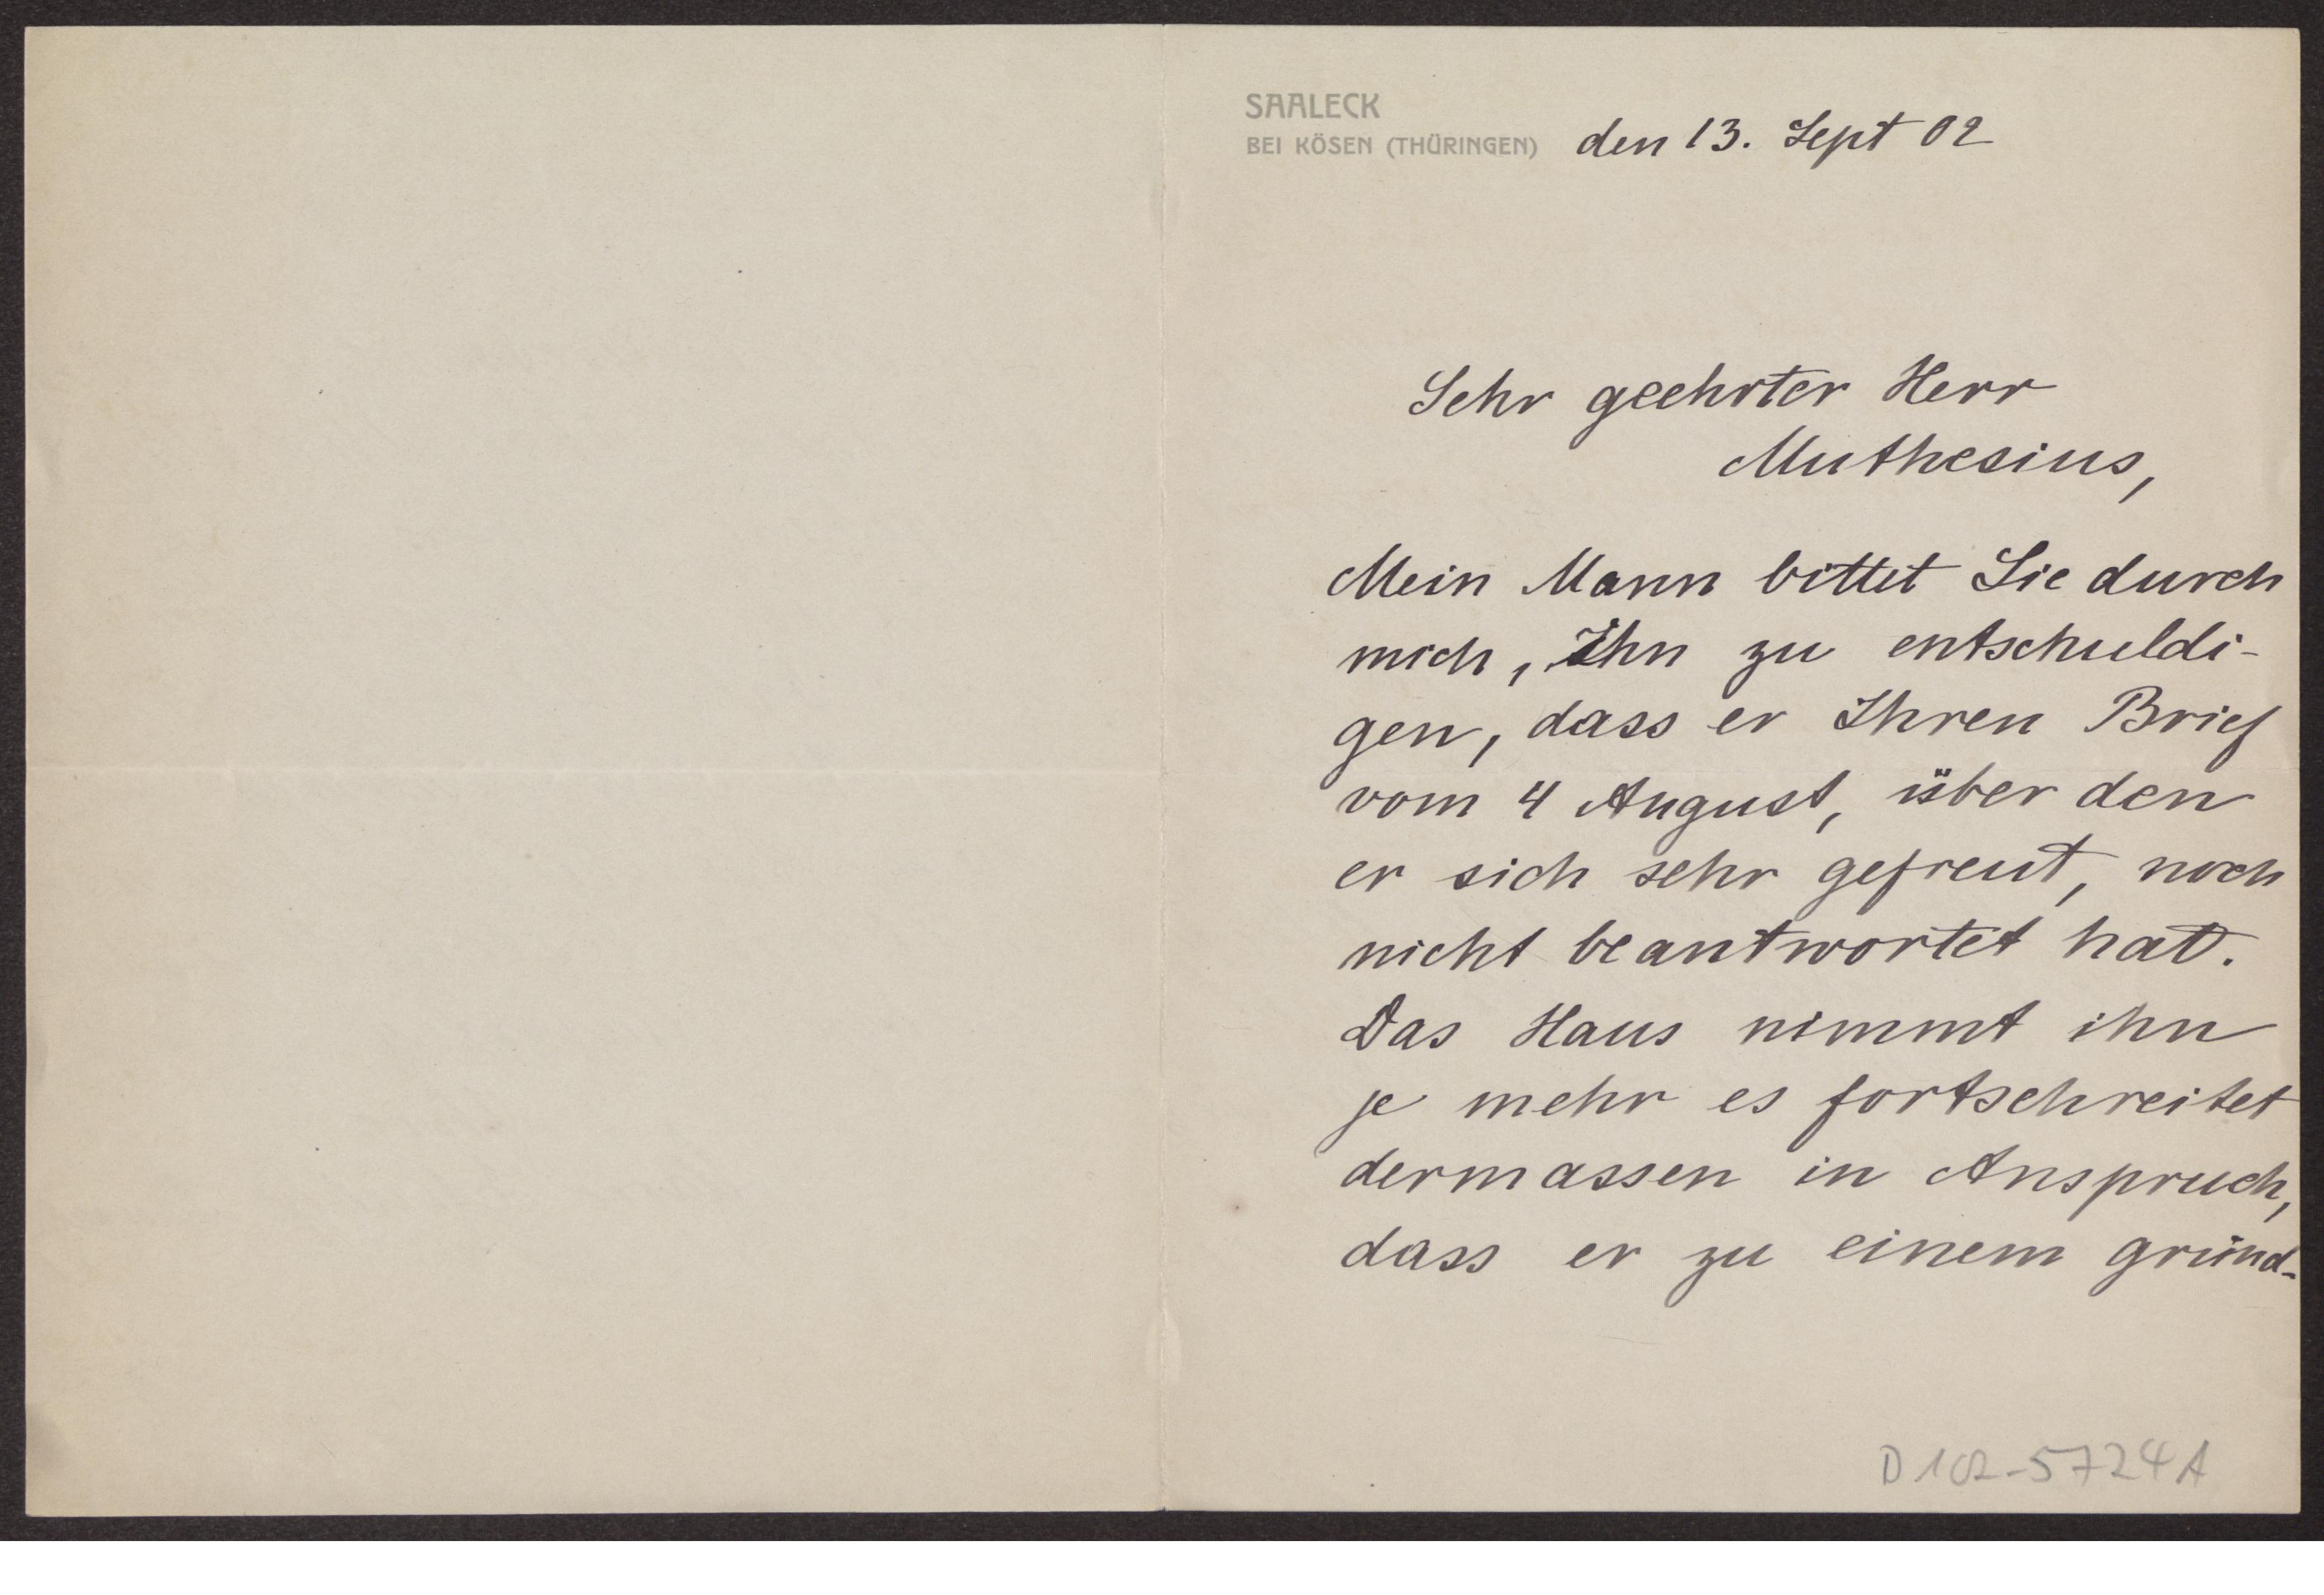 SAALECK
BEI KÖSEN (THÜRINGEN) den 13. Sept 02
Sehr geehrter Herr
Muthesius,
Mein Mann bittet Sie durch
mich, Ihn zu entschuldi-
gen, dass er Ihren Brief
vom 4 August, über den
er sich sehr gefreut, noch
nicht beantwortet hat.
Das Haus nimmt ihn
je mehr es fortschreitet
dermassen in Anspruch,
dass er zu einem gründ-
D 102-5724 A